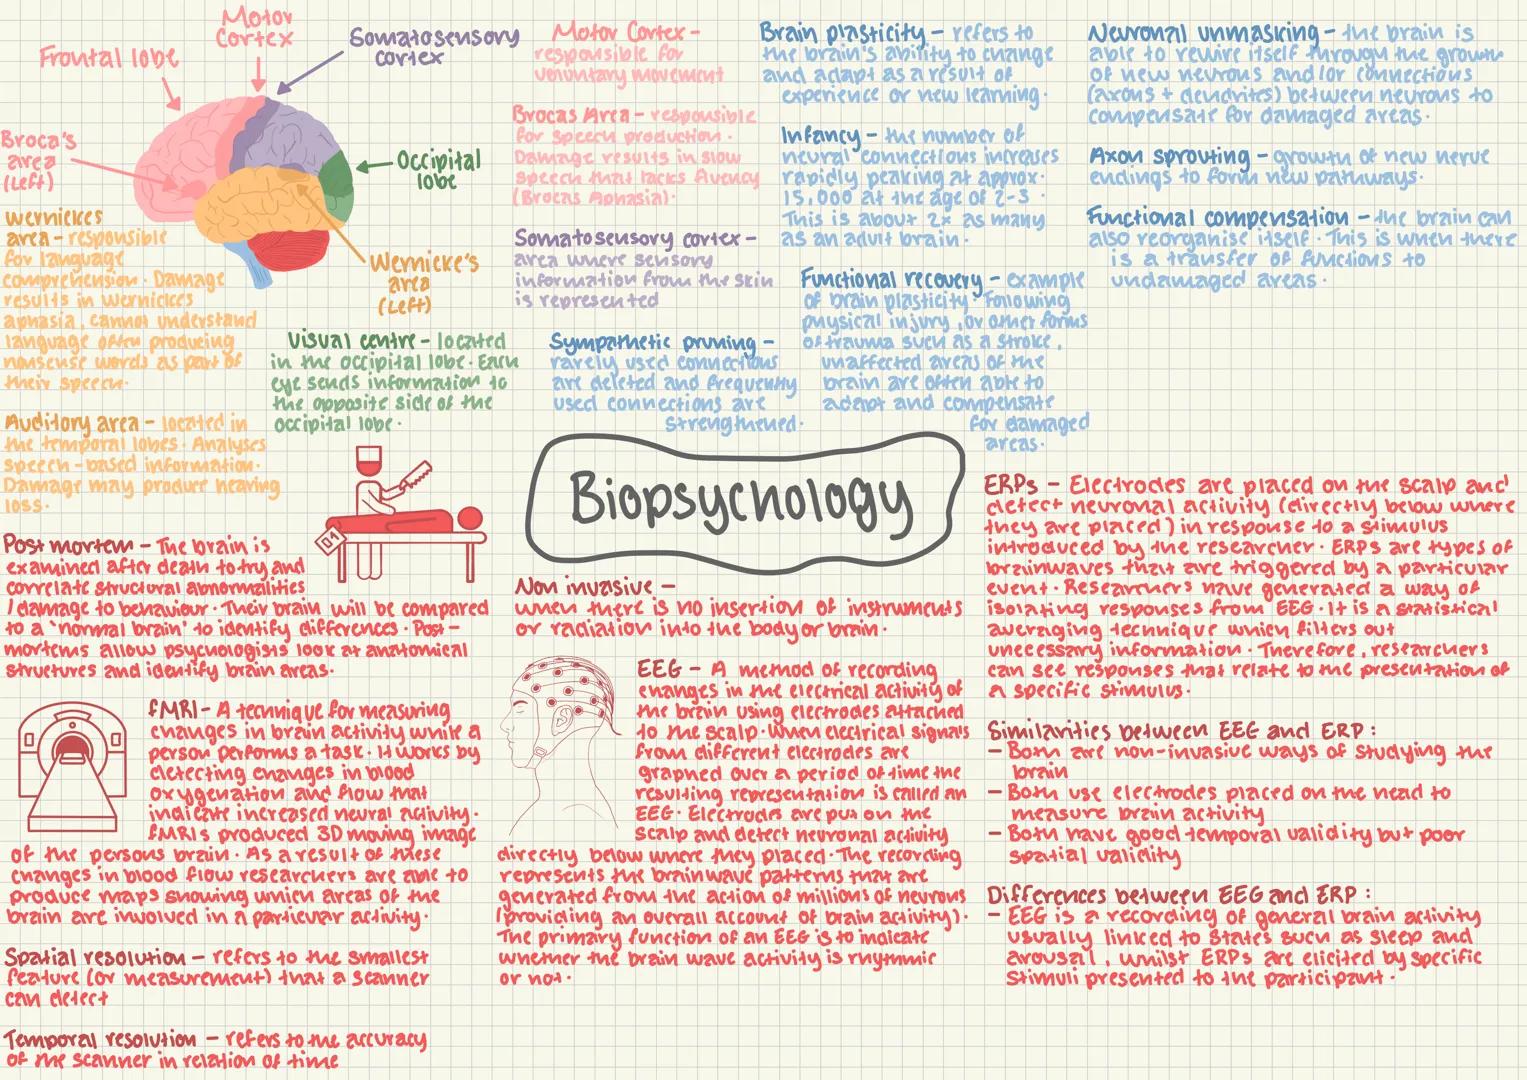 Motor
Cortex
Frontal lobe
Somatosensory
cortex
Broca's
area
(Left)
Occipital
lobe
Wernicke's
area
(Left)
Wernickes
area - responsible
for language
comprehension. Damage
results in Wernickes
aphasia, cannot understand
language often producing
nonsense words as part of
their speech.
Auditory area - located in
the temporal lobes. Analyses
speech-based information.
Damage may produce hearing
loss.
Visual centre - located
in the occipital lobe. Each
eye sends information to
the opposite side of the
occipital lobe.
Motor Cortex -
responsible for
voluntary movement
Brocas Area - responsible
for speech production.
Damage results in slow
speech that lacks fluency
(Brocas Aphasia).
Somatosensory cortex -
area where sensory
information from the skin
is represented
Sympathetic pruning -
rarely used connections
are deleted and frequently
used connections are
strengthened.
Brain plasticity - refers to
the brain's ability to change
and adapt as a result of
experience or new learning.
Infancy - the number of
neural connections increases
rapidly peaking at approx.
15,000 at the age of 2-3.
This is about 2x as many
as an adult brain.
Functional recovery - example
of brain plasticity. Following
physical injury, or other forms
of trauma such as a stroke,
unaffected areas of the
brain are often able to
adapt and compensate
for damaged
areas.
Neuronal unmasking - the brain is
able to rewire itself through the growth
of new neurons and/or connections
(axons + dendrites) between neurons to
compensate for damaged areas.
Axon sprouting - growth of new nerve
endings to form new pathways.
Functional compensation - the brain can
also reorganise itself. This is when there
is a transfer of functions to
undamaged areas.
Biopsychology
Post mortem - The brain is
examined after death to try and
correlate structural abnormalities
/damage to behaviour. Their brain will be compared
to a 'normal brain' to identify differences. Post-
mortems allow psychologists look at anatomical
structures and identify brain areas.
01
fMRI - A technique for measuring
changes in brain activity while a
person performs a task. It works by
detecting changes in blood
oxygenation and flow that
indicate increased neural activity.
fMRIs produced 3D moving image
of the persons brain. As a result of these
changes in blood flow researchers are able to
produce maps showing which areas of the
brain are involved in a particular activity.
Spatial resolution - refers to the smallest
feature (or measurement) that a scanner
can detect
Temporal resolution - refers to the accuracy
of the scanner in relation of time
Non invasive -
when there is no insertion of instruments
or radiation into the body or brain.
EEG - A method of recording
changes in the electrical activity of
the brain using electrodes attached
to the scalp. When electrical signals
from different electrodes are
graphed over a period of time the
resulting representation is called an
EEG. Electrodes are put on the
scalp and detect neuronal activity
directly below where they placed. The recording
represents the brainwave patterns that are
generated from the action of millions of neurons
(providing an overall account of brain activity).
The primary function of an EEG is to indicate
whether the brain wave activity is rhythmic
or not.
ERPs - Electrodes are placed on the scalp and
detect neuronal activity (directly below where
they are placed) in response to a stimulus
introduced by the researcher. ERPs are types of
brainwaves that are triggered by a particular
event. Researchers have generated a way of
isolating responses from EEG. It is a statistical
averaging technique which filters out
unnecessary information. Therefore, researchers
can see responses that relate to the presentation of
a specific stimulus.
Similarities between EEG and ERP:
- Both are non-invasive ways of studying the
brain
- Both use electrodes placed on the head to
measure brain activity
- Both have good temporal validity but poor
spatial validity
Differences between EEG and ERP:
- EEG is a recording of general brain activity
usually linked to states such as sleep and
arousal, whilst ERPs are elicited by specific
stimuli presented to the participant.